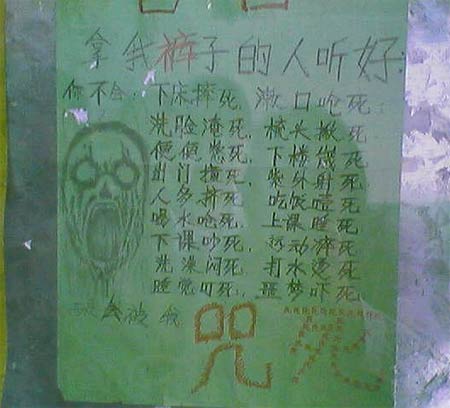 拿我裤子的人听好:
你不会: 下床摔死, 漱口呛死;
洗脸淹死, 梳头揪死
便便憋死, 下楼
出门撞死, 紫外射死
人多挤死, 吃饭噎死
喝水呛死, 上课睡死
下课吵死, 运动猝死
洗澡闷死, 打水烫死
睡觉叮死, 噩梦吓死
会被我
咒 死